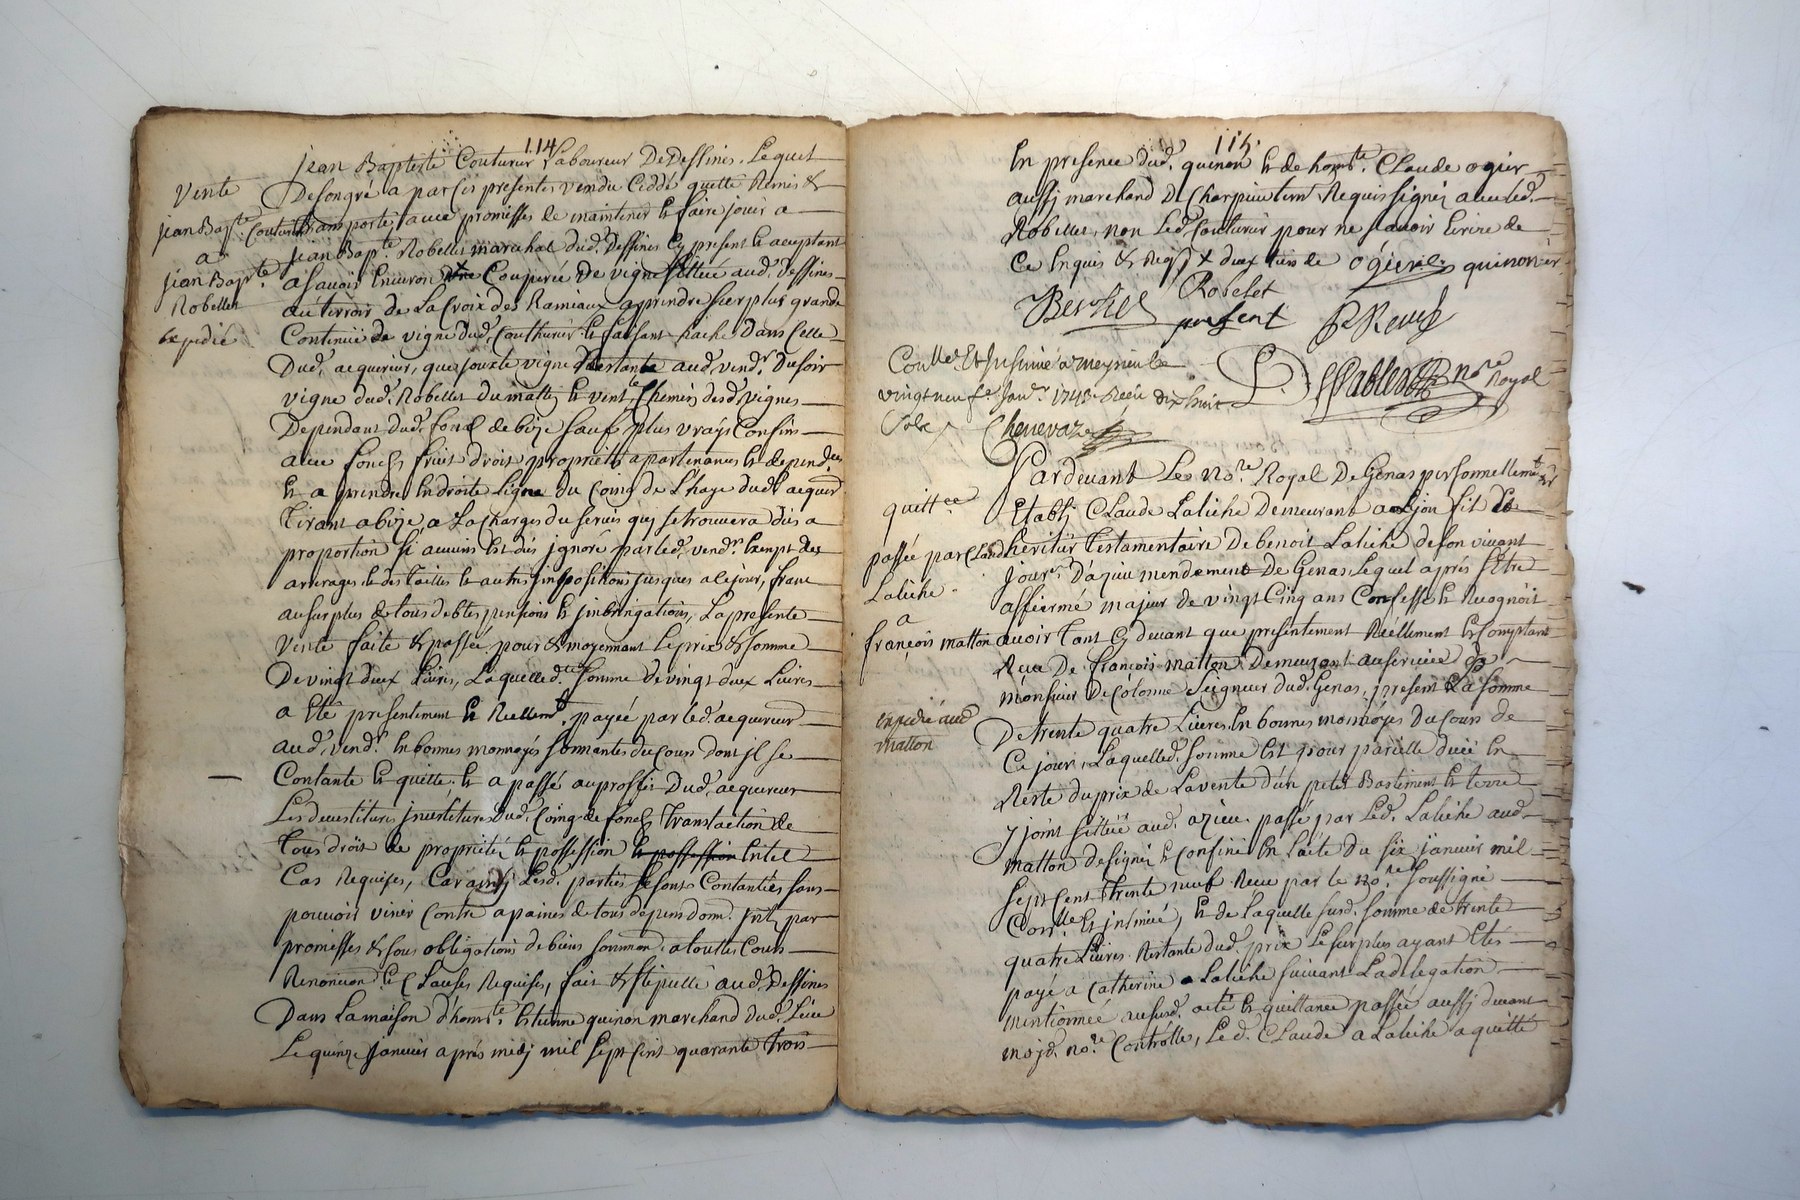 114
jean Baptiste Couturier Laboureur De Dessines, Lequel
De son gré a par ces presentes vendu Ceddé quitté Remis &
transporté, avec promesses de maintenir & faire jouir a
jean Bapt.te Robellet marechal dud. Dessines Cy present & aceptant
a savoir Environ Couperée De vigne sittuée aud. dessines
au terroir de La Croix des Rameaux a prendre sur plus grande
Continüe de vigne dud. Couthurier & faisant hache dans Celle
Dud. acquereur, que jouxte vigne Restante aud. vend.r Du soir
vigne dud. Robellet du matin & vent & Chemin desd. vignes
Dependant dud. fond de bize sauf plus vrays Confins
avec fonds fruits droit proprietés apartenances & depend.ces
& a prendre En droite Ligne du Coing de L'haye dud. acquer.r
Tirant a bize, a La Charge du servis quy se trouvera dû a
proportion si aucuns Est dû ignoré par led. vend.r Exempt des
arrerages & des tailles & autres impositions jusques a ce jour, franc
au surplus de tous debtes pensions & jmbrigations, La presente
Vente faite & passée pour & moyennant Le prix & somme
De vingt deux Livres, Laquelle d.te somme de vingt deux Livres
a Eté presentement & Réellem.t payée par led. acquereur
aud. vend.r En bonnes monnoyes sonnantes du Cours dont jl se
Contante & quitte, & a passé au proffit Dud. acquereur
Les devestitures jnvestitures dud. Coing de fonds translaction de
Tous droit de proprieté, & possession & possession En tel
Cas Requises, Car ainsy Lesd. parties se sont Contantées sans
pouvoir venir Contre a paines de tous depens dom. jnt. par
promesses & sous obligations de biens sommond. a touttes Cours
Renonciaon & Clauses Requises, fait & stipullé aud. Dessines
Dans La maison d'honn.te Estienne quinon marchand dud. Lieu
Le quinze Janvier aprés midy mil sept cent quarante trois
Vente
jean Bap.te Couturier
a
jean Bap.te
Robellet
Expedié
115.
En presence dud. quinon & de hon.te Claude ogier
aussy marchand De Charpieu tem.s Requis signés avec led.
Robellet, non Led. Couturier pour ne savoir Ecrire de
Ce Enquis & Req. deux tiers de ogier quinon
Robelet
present
Coll.é Et Insinué a meyzieu le
vingt neuf.e Janv.r 1743. Reçu dix huit
sols Chenevaz
n.re Royal
Pardevant Le No.re Royal De Genas personnellement
Etably Claude Laliche Demeurant a Lyon fils &
heritier Testamentaire De benoit Laliche de son vivant
jour.r D'azieu mendement De Genas, Lequel aprés s'Etre
affirmé majeur de vingt Cinq ans Confesse & Recognoit
avoir tant Cy devant que presentement Réellement & Comptant
Receu De françois matton Demeurant au service de
monsieur De Colonne Seigneur dud. Genas, present La somme
De trente quatre Livres En bonnes monnoyes du Cours de
Ce jour, Laquelle d. somme Est pour pareille düe En
Reste du prix de La vente d'un petit Bastiment & terre
y joint sittüé aud. azieu passé par Led. Laliche aud.
matton designé & Confiné En l'acte du six janvier mil
sept cent Trente neuf Receu par le no.re soussigné
Con.llé & insinué, & de laquelle susd. somme de trente
quatre Livres Restante dud. prix Le surplus ayant Eté
payé a Catherine Laliche suivant La delegation
mentionnée au susd. acte & quittance passée aussy devant
moy d. no.re Controllé, Led. Claude Laliche a quitté
quitt.ce
passée par Claude
Laliche
a
françois matton
expedié aud.
matton